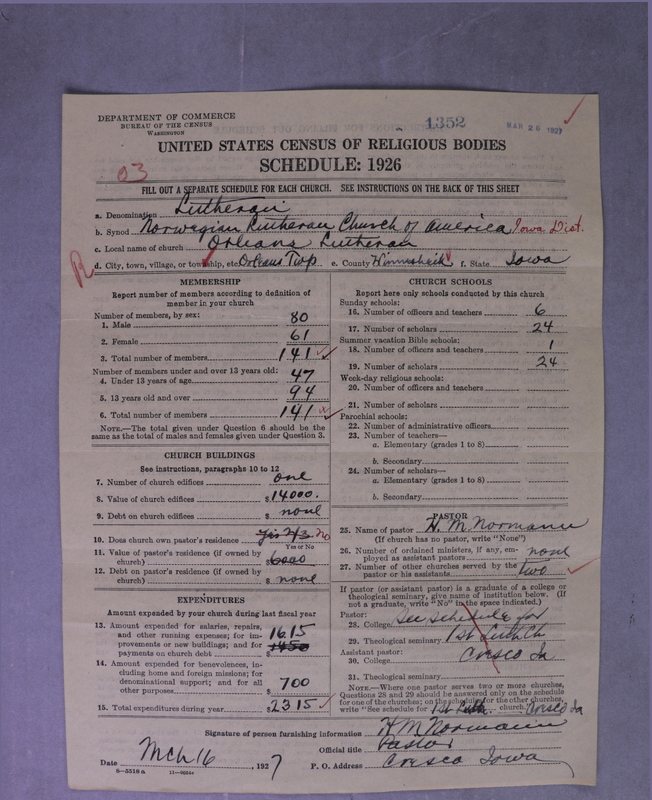 DEPARTMENT OF COMMERCE
BUREAU OF THE CENSUS
WASHINGTON
1352
MAR 26 1927
UNITED STATES CENSUS OF RELIGIOUS BODIES
SCHEDULE: 1926
03
FILL OUT A SEPARATE SCHEDULE FOR EACH CHURCH. SEE INSTRUCTIONS ON THE BACK OF THIS SHEET
a. Denomination Lutheran
b. Synod Norwegian Lutheran Church of America Iowa Dist.
c. Local name of church Orleans Lutheran
R d. City, town, village, or township, etc. Orleans Twp e. County Winnesheik f. State Iowa
MEMBERSHIP
Report number of members according to definition of
member in your church
Number of members, by sex:
1. Male 80
2. Female 61
3. Total number of members 141
Number of members under and over 13 years old:
4. Under 13 years of age 47
5. 13 years old and over 94
6. Total number of members 141
NOTE.—The total given under Question 6 should be
the same as the total of males and females given under Question 3.
CHURCH BUILDINGS
See instructions, paragraphs 10 to 12
7. Number of church edifices one
8. Value of church edifices $14000.
9. Debt on church edifices $none
10. Does church own pastor's residence yes 2/3 no
Yes or No
11. Value of pastor's residence (if owned by
church) $6000
12. Debt on pastor's residence (if owned by
church) $none
EXPENDITURES
Amount expended by your church during last fiscal year
13. Amount expended for salaries, repairs,
and other running expenses; for im-
provements or new buildings; and for
payments on church debt $1450 1615
14. Amount expended for benevolences, in-
cluding home and foreign missions; for
denominational support; and for all
other purposes $700
15. Total expenditures during year $2315
CHURCH SCHOOLS
Report here only schools conducted by this church
Sunday schools:
16. Number of officers and teachers 6
17. Number of scholars 24
Summer vacation Bible schools:
18. Number of officers and teachers 1
19. Number of scholars 24
Week-day religious schools:
20. Number of officers and teachers
21. Number of scholars
Parochial schools:
22. Number of administrative officers
23. Number of teachers—
a. Elementary (grades 1 to 8)
b. Secondary
24. Number of scholars—
a. Elementary (grades 1 to 8)
b. Secondary
PASTOR
25. Name of pastor H. M. Normann
(If church has no pastor, write "None")
26. Number of ordained ministers, if any, em-
ployed as assistant pastors none
27. Number of other churches served by the
pastor or his assistants two
If pastor (or assistant pastor) is a graduate of a college or
theological seminary, give name of institution below. (If
not a graduate, write "No" in the space indicated.)
Pastor:
28. College See Schedule for
29. Theological seminary 1st Luth Ch
Assistant pastor:
30. College Cresco Ia
31. Theological seminary
NOTE.—Where one pastor serves two or more churches,
Questions 28 and 29 should be answered only on the schedule
for one of the churches; on the schedule for the other churches,
write "See schedule for 1st Luth church. Cresco Ia
Signature of person furnishing information H M Normann
Official title Pastor
Date Mch 16, 1927 P. O. Address Cresco Iowa
8—5318a